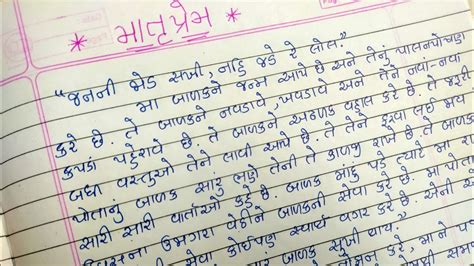 * માતૃપ્રેમ *
"જનની ની જોડ સખી, નહિ જડે રે લોલ."
મા બાળકને જન્મ આપે છે અને તેનું પાલનપોષણ
કરે છે. તે બાળકને નવડાવે, ખવડાવે અને તેને નવા-નવા
કપડાં પહેરાવે છે. તે બાળકને અઢળક વહાલ કરે છે. તે જરૂરી
બધી વસ્તુઓ તેને લાવી આપે છે. તે તેને ફરવા લઈ જાય
પોતાનું બાળક સારું ભણે તેની તે કાળજી રાખે છે. તે બાળક
સારી સારી વાર્તાઓ કહે છે. બાળક માંદુ પડે ત્યારે મા રાત
દિવસના ઉજાગરા વેઠીને બાળકની સેવા કરે છે. મા પોતા
સેવા કોઈપણ સ્વાર્થ વગર કરે છે. એની
બાળક સુખી થાય.